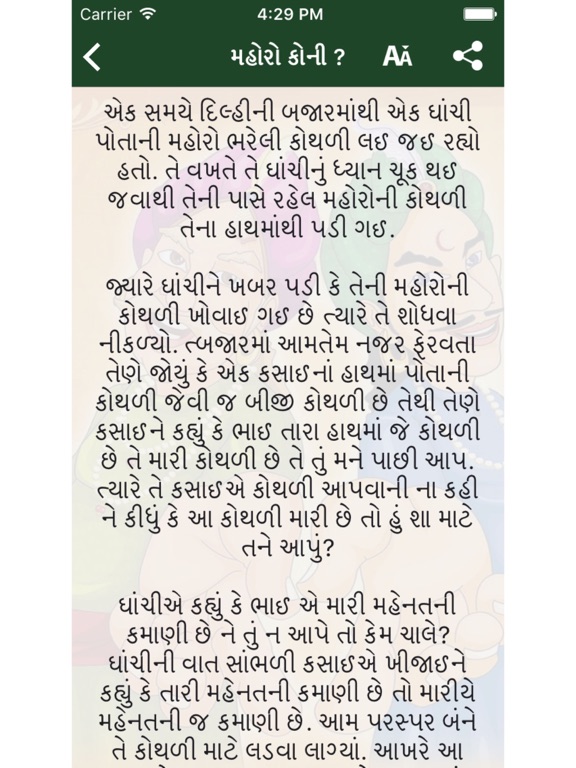 Carrier 4:29 PM
મહોરો કોની ? AA
એક સમયે દિલ્હીની બજારમાંથી એક ઘાંચી
પોતાની મહોરો ભરેલી કોથળી લઇ જઇ રહ્યો
હતો. તે વખતે તે ઘાંચીનું ધ્યાન ચૂક થઇ
જવાથી તેની પાસે રહેલ મહોરોની કોથળી
તેના હાથમાંથી પડી ગઇ.
જ્યારે ઘાંચીને ખબર પડી કે તેની મહોરોની
કોથળી ખોવાઇ ગઇ છે ત્યારે તે શોધવા
નીકળ્યો. ત્બજારમાં આમતેમ નજર ફેરવતા
તેણે જોંયું કે એક કસાઇનાં હાથમાં પોતાની
કોથળી જેવી જ બીજી કોથળી છે તેથી તેણે
કસાઇને કહ્યું કે ભાઇ તારા હાથમાં જે કોથળી
છે તે મારી કોથળી છે તે તું મને પાછી આપ.
ત્યારે તે કસાઇએ કોથળી આપવાની ના કહી
ને કીધું કે આ કોથળી મારી છે તો હું શા માટે
તને આપું?
ઘાંચીએ કહ્યું કે ભાઇ એ મારી મહેનતની
કમાણી છે ને તું ન આપે તો કેમ ચાલે?
ઘાંચીની વાત સાંભળી કસાઇએ ખીજાઇને
કહ્યું કે તારી મહેનતની કમાણી છે તો મારીયે
મહેનતની જ કમાણી છે. આમ પરસ્પર બંને
તે કોથળી માટે લડવા લાગ્યાં. આખરે આ